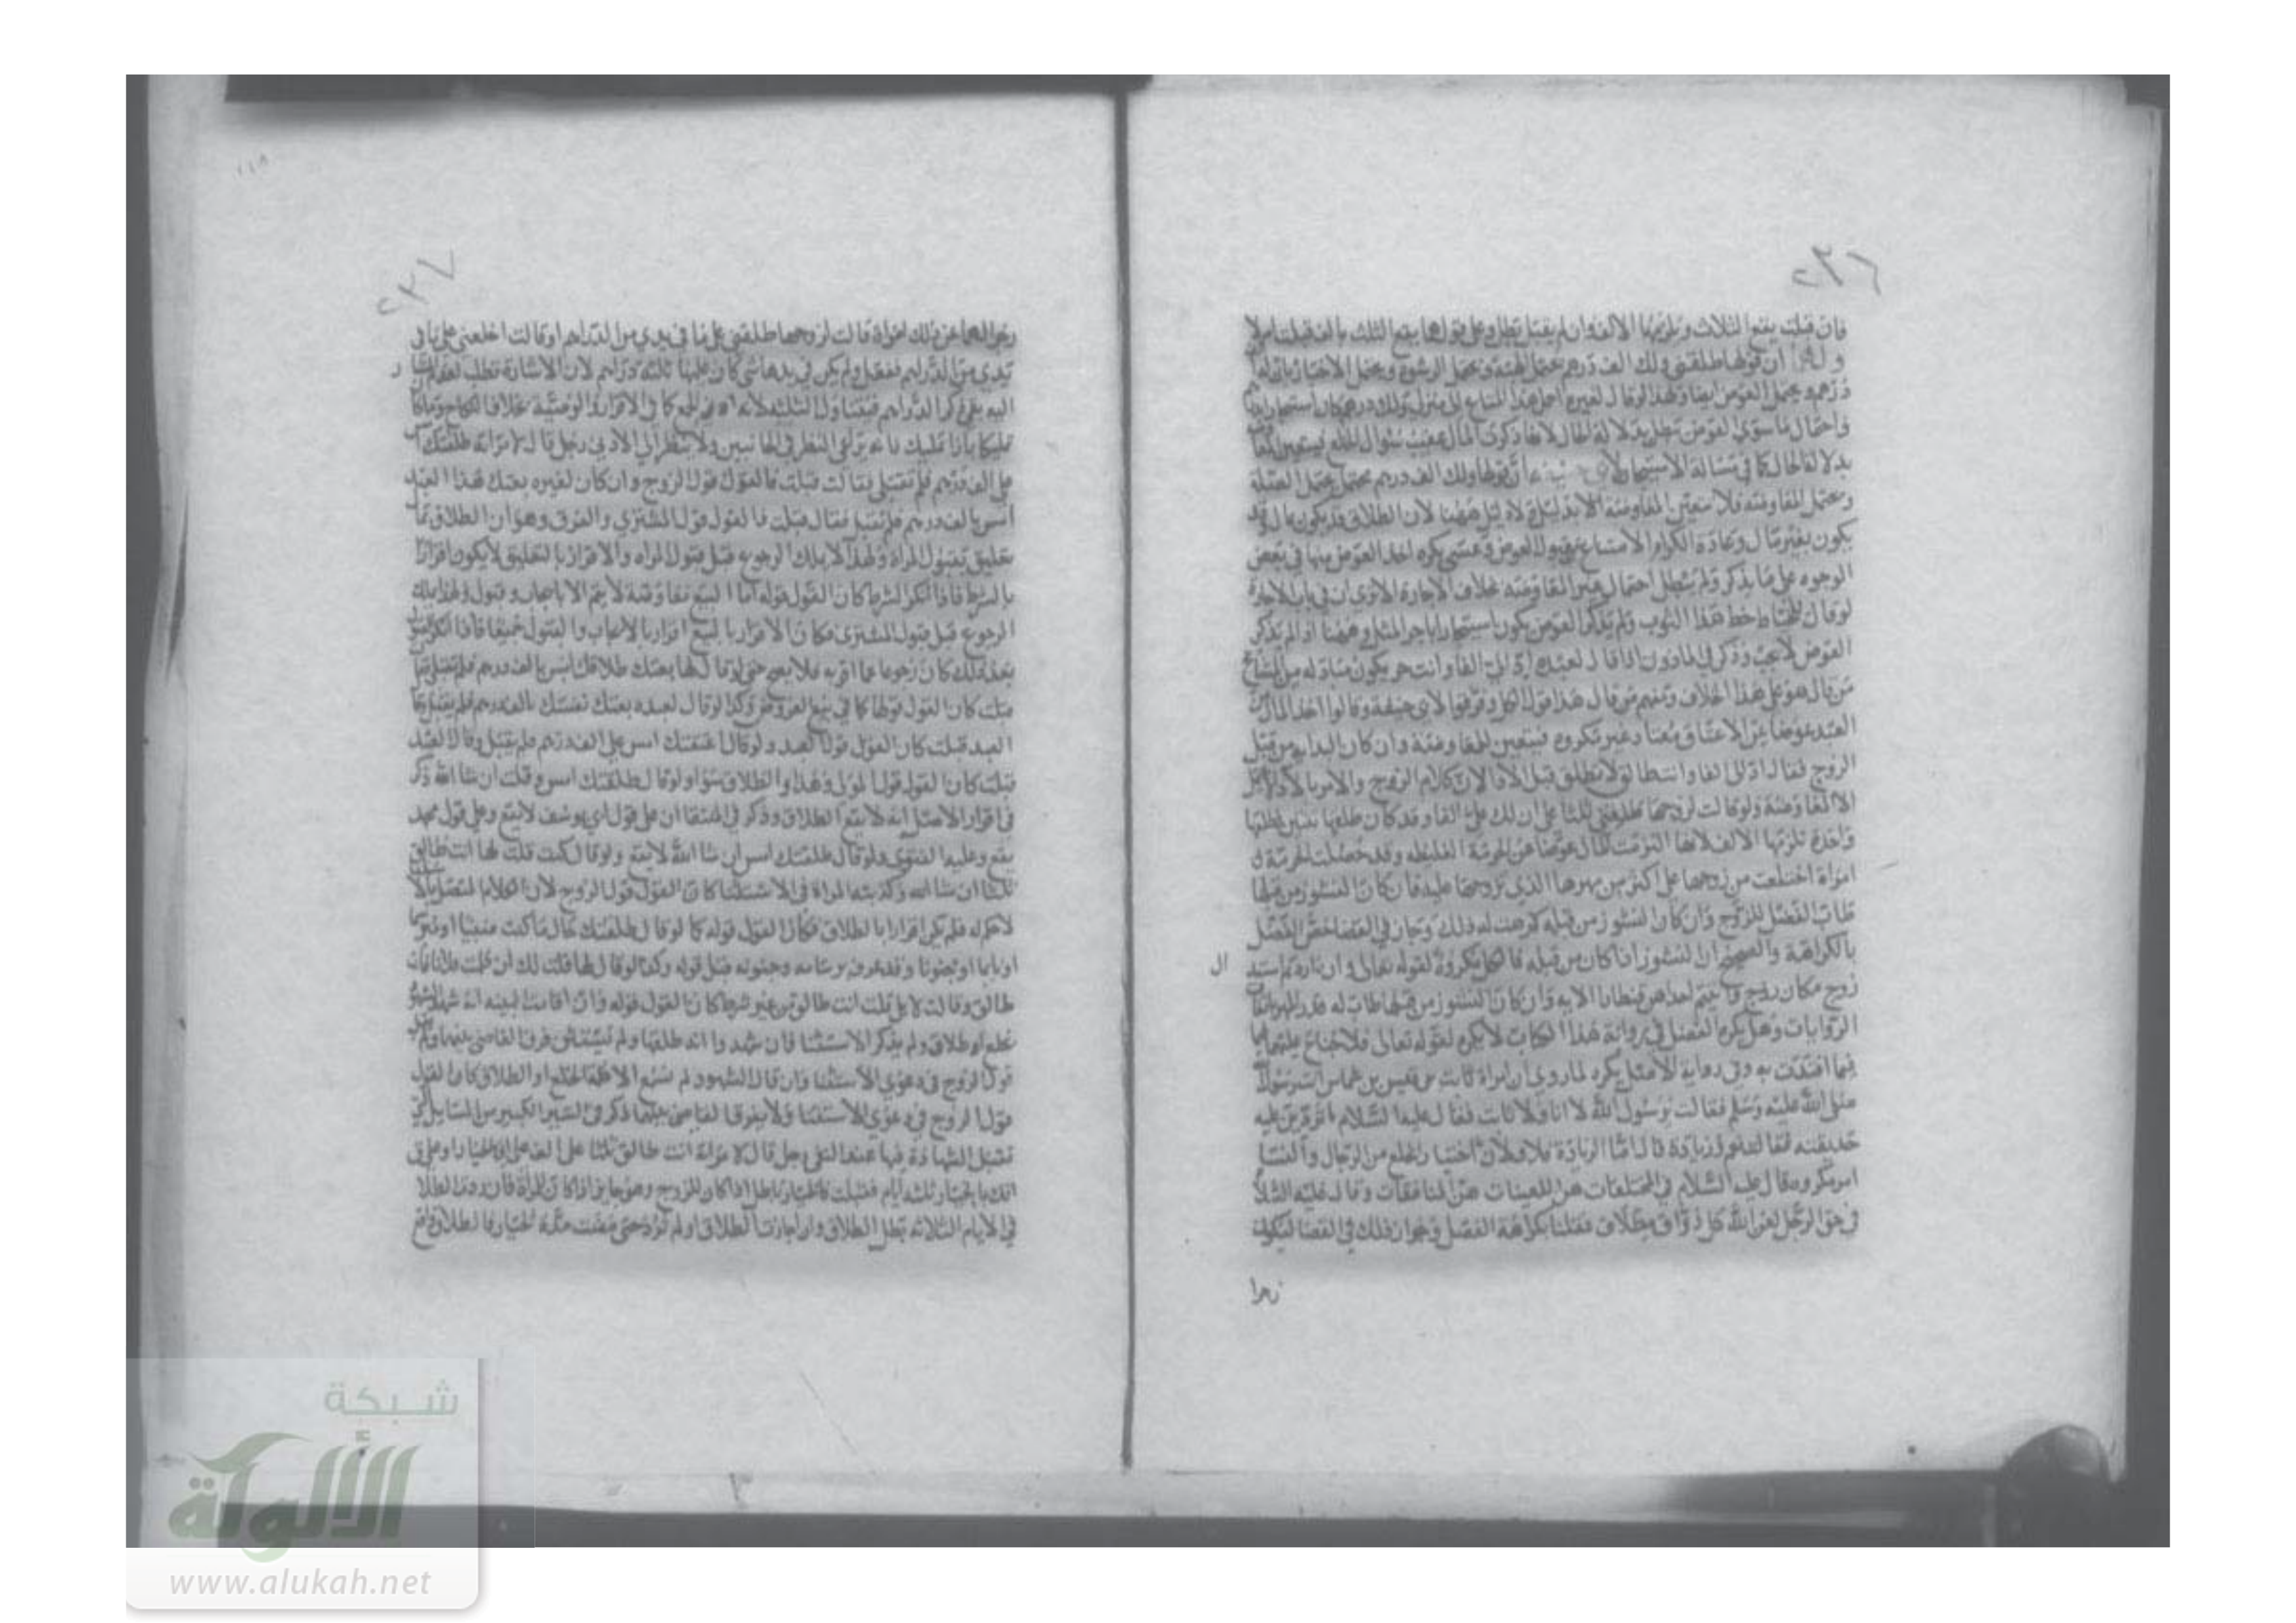 ٢٣٦
فان قبلت يقع الثلاث ويلزمها الالف وان لم يقبل بطل وعلى قولهما يقع الثلث بالف قبلت ام لا
ان قولها طلقني ولك الف درهم يحتمل الهبة ويحتمل الرشوة ويحتمل الاخبار
درهم ويحتمل العوض ايضا ولهذا لو قال لغيره احمل هذا المتاع الى منزلي ولك درهم كان استيجارا
واحتمال ما سوى العوض بطل بدلالة الحال لانها ذكرت المال عقيب سؤال الخلع
بدلالة الحال كما في مسألة الاستيجار ان قولها ولك الف درهم محتمل يحتمل العدة
ويحتمل المفاوضة فلا يتعين المفاوضة الا بدليل ولا دليل ههنا لان الطلاق قد يكون بمال وقد
يكون بغير مال وعادة الكرام الامتناع عن قبول العوض وعسى يكره اخذ العوض منها في بعض
الوجوه على ما يذكر ولم يبطل احتمال غير المفاوضة بخلاف الاجارة الا ترى ان في باب الاجارة
لو قال للخياط خط هذا الثوب ولم يذكر العوض يكون استيجارا باجر المثل وههنا لو لم يذكر
العوض لا يجب وذكر في الماذون اذا قال لعبده اد الي الفا وانت حر يكون مبادلة من المشايخ
من قال هو على هذا الخلاف ومنهم من قال هذا قول الكل وفرقوا لابي حنيفة وقالوا اخذ المال من
العبد عوضا عن الاعتاق معتاد غير مكروه فتتعين المفاوضة وان كان البداية من قبل
الزوج فقال اد الي الفا وانت طالق لا تطلق قبل الاداء لان كلام الزوج والامر بالاداء
الا المفاوضة ولو قالت لزوجها طلقني ثلثا على ان لك علي الفا وقد كان طلقها ثنتين فطلقها
واحدة تلزمها الالف لانها التزمت المال عوضا عن الحرمة الغليظة وقد حصلت الحرمة
امراة اختلعت من زوجها على اكثر من مهرها الذي تزوجها عليه فان كان النشوز من قبلها
طاب الفضل للزوج وان كان النشوز من قبله كرهت له ذلك وجاز في القضا خص الفضل
بالكراهة والصحيح ان النشوز اذا كان من قبله فالكل مكروه لقوله تعالى وان اردتم استبدال
زوج مكان زوج واتيتم احداهن قنطارا الاية وان كان النشوز من قبلها طاب له قدر المهر باتفاق
الروايات وهل يكره الفضل في رواية هذا الكتاب لا يكره لقوله تعالى فلا جناح عليهما
فيما افتدت به وفي رواية الاصل يكره لما روي ان امراة ثابت بن قيس بن شماس اتت رسول الله
صلى الله عليه وسلم فقالت يرسول الله لا انا ولا ثابت فقال عليه السلام اتردين عليه
حديقته فقالت نعم وزيادة قال اما الزيادة فلا ولان الخلع من الرجال والنسا
امر مكروه قال عليه السلام في المختلعات هن اللعينات هن المنافقات وقال عليه السلام
في حق الرجل لعن الله كل ذواق مطلاق فقلنا بكراهة الفضل وجواز ذلك في القضا ليكون
زجرا
٢٣٧
زجرا لهما عن ذلك امراة قالت لزوجها طلقني على ما في يدي من الدراهم او قالت اخلعني على ما في
يدي من الدراهم ففعل ولم يكن في يدها شي كان عليها ثلثة دراهم لان الاشارة تبطل لعدم المشار
اليه بقي ذكر الدراهم فيتناول الثلثة لانه ادنى الجمع كما في الاقرار والوصية بخلاف النكاح
تمليكا بازا تمليك فانه يراعى النظر في الجانبين ولا ينظر الى الادنى رجل قال لامراته طلقتك امس
على الف درهم فلم تقبلي فقالت قبلت فالقول قول الزوج وان كان لغيره بعتك هذا العبد
امس بالف درهم فلم تقبل فقال قبلت فالقول قول المشتري والفرق وهو ان الطلاق بمال
تعليق بقبول المراة ولهذا لا يملك الرجوع قبل قبول المراه والاقرار بالتعليق لا يكون اقرارا
بالشرط فاذا انكر الشرط كان القول قوله اما البيع مفاوضة لا يتم الا بايجاب وقبول ولهذا ملك
الرجوع قبل قبول المشتري فكان الاقرار بالبيع اقرارا بالايجاب والقبول جميعا فاذا انكر القبول
بعد ذلك كان رجوعا عما اقر به فلا يصح حتى لو قال لها بعتك طلاقك امس بالف درهم فلم تقبلي فقالت
قبلت كان القول قولها كما في بيع العروض وكذا لو قال لعبده بعتك نفسك بالف درهم فلم يقبل وقال
العبد قبلت كان القول قول العبد ولو قال اعتقتك امس على الف درهم فلم تقبل وقال العبد
قبلت كان القول قول المولى وهذا والطلاق سوا ولو قال طلقتك امس وقلت ان شا الله ذكر
في اقرار الاصل انه لا يقع الطلاق وذكر في المنتقا ان على قول ابي يوسف لا يقع وعلى قول محمد
يقع وعليه الفتوى ولو قال طلقتك امس ان شا الله لا يقع ولو قال كنت قلت لها انت طالق
ثلثا ان شا الله وكذبته المراة في الاستثنا كان القول قول الزوج لان الكلام المتصل بالاستثنا
لا حكم له فلم يكن اقرارا بالطلاق فكان القول قوله كما لو قال طلقتك حال ما كنت صبيا او
نايما او مجنونا وقد عرف برسامه وجنونه قبل قوله وكذا لو قال لها قلت لك ان كلمت فلانا فانت
طالق وقالت لا بل قلت انت طالق من غير شرط كان القول قوله وان اقامت البينه انه شهد الشهود
بخلع او طلاق ولم يذكر الاستثنا فان شهدوا انه طلقها ولم يستثن فرق القاضي بينهما ولم يقبل
قول الزوج في دعوى الاستثنا وان قال الشهود لم نسمع الا كلمة الخلع او الطلاق كان القول
قول الزوج في دعوى الاستثنا ولا يفرق القاضي بينهما ذكر في السير الكبير من المسايل التي
تقبل الشهادة فيها عند النفي رجل قال لامراة انت طالق ثلثا على الف على اني بالخيار او على
انك بالخيار ثلثه ايام فقبلت فالخيار باطل اذا كان للزوج وهو جايز اذا كان للمراة فان ردت الطلاق
في الايام الثلاثه بطل الطلاق وان اجازت الطلاق او لم ترد حتى مضت مدة الخيار فالطلاق واقع
شبكة
الألوكة
www.alukah.net